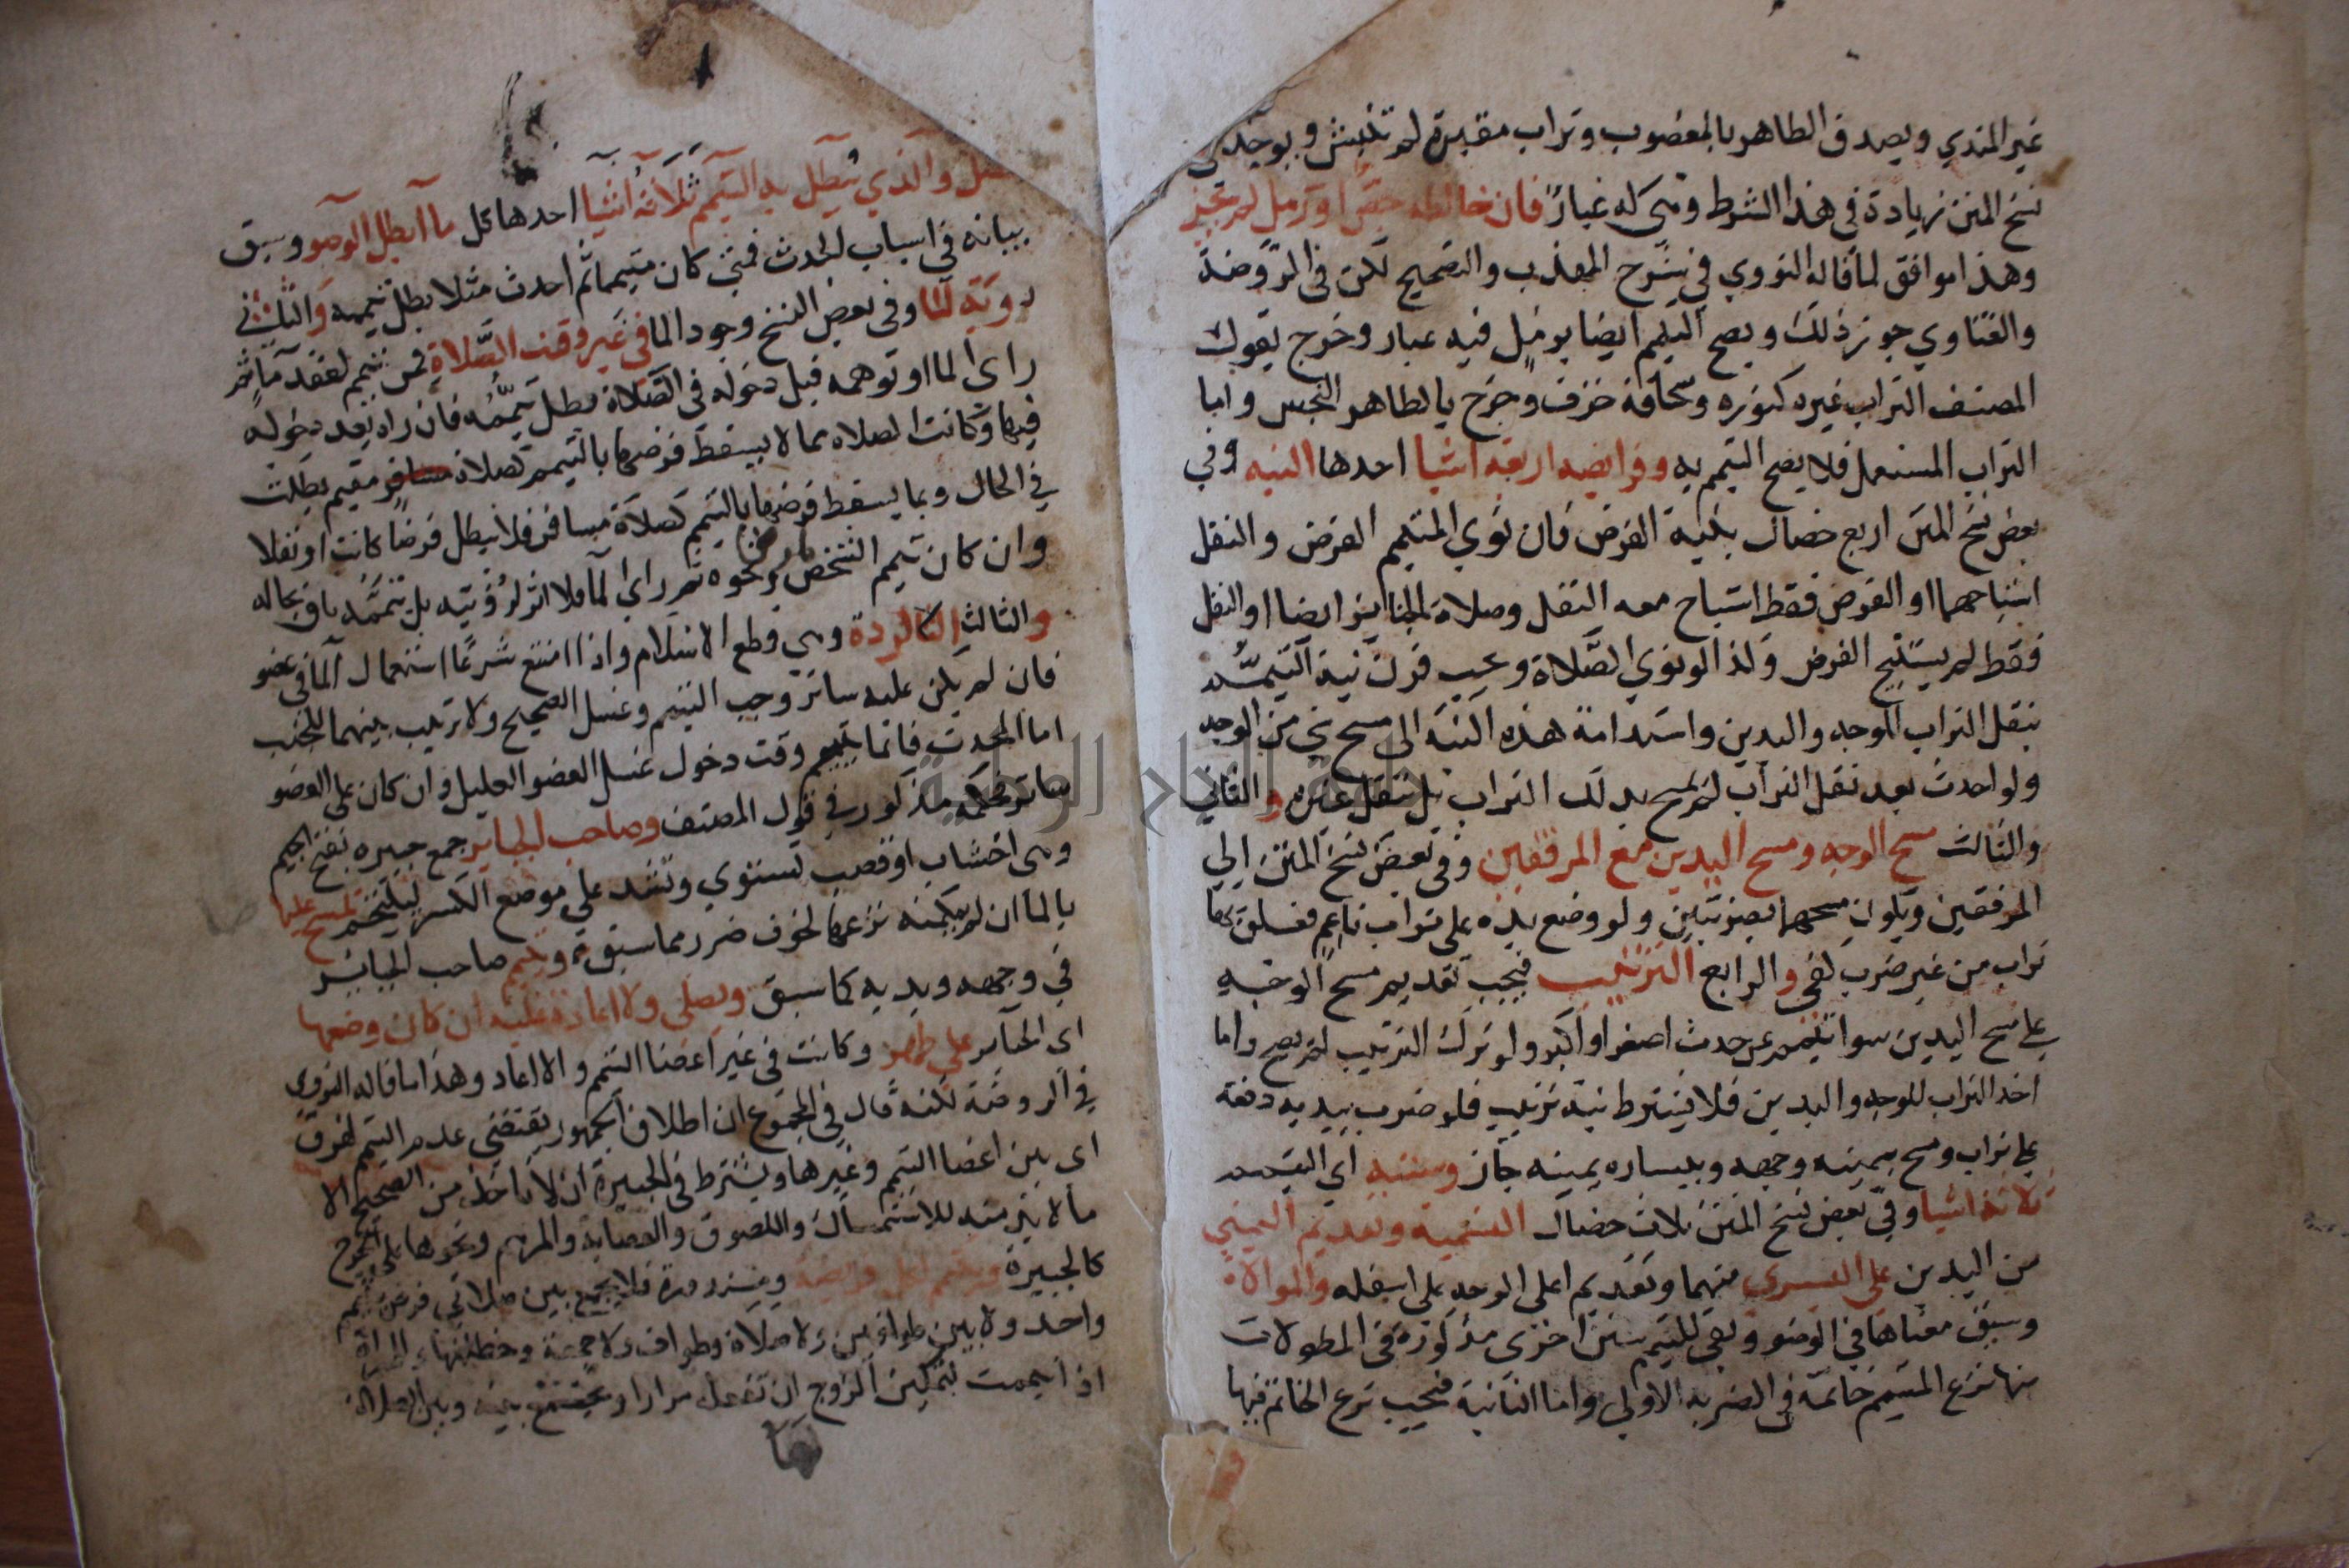 غير المندي ويصدق الطاهر بالمغصوب وتراب مقبرة لم تنبش ويوجد في
نسخ المتن زيادة في هذا الشرط وهي له غبار فان خالطه جص او رمل لم يجز
وهذا موافق لما قاله النووي في شرح المهذب والتصحيح لكن في الروضة
والفتاوي جوز ذلك ويصح التيمم ايضا برمل فيه غبار وخرج بقول
المصنف التراب غيره كنوره وسحاقة خزف وخرج بالطاهر النجس واما
التراب المستعمل فلا يصح التيمم به وفرايضه اربعة اشيا احدها النيه وفي
بعض نسخ المتن اربع خصال بنية الفرض فان نوي المتيمم الفرض والنفل
استباحهما او الفرض فقط استباح معه النفل وصلاة الجنايز ايضا او النفل
فقط لم يستبح الفرض وكذا لو نوي الصلاة ويجب قرن نية التيمم
بنقل التراب للوجه واليدين واستدامة هذه النية الى مسح شي من الوجه
ولو احدث بعد نقل التراب لم يمسح بذلك التراب بل ينقل غيره والثاني
والثالث مسح الوجه ومسح اليدين مع المرفقين وفي بعض نسخ المتن الي
المرفقين ويكون مسحهما بضربتين ولو وضع يده على تراب ناعم فعلق بها
تراب من غير ضرب كفى والرابع الترتيب فيجب تقديم مسح الوجه
على مسح اليدين سوا تيمم عن حدث اصغر او اكبر ولو ترك الترتيب لم يصح واما
اخذ التراب للوجه واليدين فلا يشترط فيه ترتيب فلو ضرب بيديه دفعة
على تراب ومسح بيمينه وجهه وبيساره يمينه جاز وسننه اي التيمم
ثلاثة اشيا وفي بعض نسخ المتن ثلاث خصال التسمية وتقديم اليمني
من اليدين على اليسري منهما وتقديم اعلى الوجه على اسفله والموالاة
وسبق معناها في الوضو وبقى للتيمم سنن اخرى مذكورة في المطولات
منها نزع المتيمم خاتمه في الضربة الاولي واما الثانية فيجب نزع الخاتم فيها
فصل والذي يبطل به التيمم ثلاثة اشيا احدها كل ما ابطل الوضو وسبق
بيانه في اسباب الحدث فمتى كان متيمما ثم احدث مثلا بطل تيممه والثاني
روية الما وفي بعض النسخ وجود الما في غير وقت الصلاة فمن تيمم لفقد ما ثم
راى الما او توهمه قبل دخوله في الصلاة بطل تيممه فان راه بعد دخوله
فيها وكانت الصلاه مما لا يسقط فرضها بالتيمم كصلاة مقيم بطلت
في الحال وبما يسقط فرضها بالتيمم كصلاة مسافر فلا تبطل فرضا كانت او نفلا
وان كان تيمم الشخص لمرض ونحوه ثم راى الما فلا اثر لرؤيته بل تيممه باق بحاله
والثالث الردة وهي قطع الاسلام واذا امتنع شرعا استعمال الما في عضو
فان لم يكن عليه ساتر وجب التيمم وغسل الصحيح ولا ترتيب بينهما للجنب
اما المحدث فانما يتيمم وقت دخول غسل العضو العليل وان كان على العضو
ساتر فحكمه مذكور في قول المصنف وصاحب الجباير جمع جبيره بفتح الجيم
وهى اخشاب او قصب تسوي وتشد على موضع الكسر ليلتحم يمسح عليها
بالما ان لم يمكنه نزعها لخوف ضرر مما سبق ويتيم صاحب الجباير
في وجهه ويديه كما سبق ويصلي ولا اعادة عليه ان كان وضعها
اى الجباير على طهر وكانت في غير اعضا التيمم والا اعاد وهذا ما قاله النووي
في الروضة لكنه قال في المجموع ان اطلاق الجمهور يقتضي عدم الفرق
اى بين اعضا التيمم وغيرها ويشترط في الجبيرة ان لا تاخذ من الصحيح الا
ما لا بد منه للاستمساك واللصوق والعصابة والمرهم ونحوها على الجرح
كالجبيرة ويتيمم لكل فريضة ومنذورة فلا يجمع بين صلاتي فرض بتيمم
واحد ولا بين طوافين ولا صلاة وطواف ولا جمعة وخطبتها وللمراة
اذا تيممت لتمكين الزوج ان تفعله مرارا وتجمع بينه وبين الصلاة